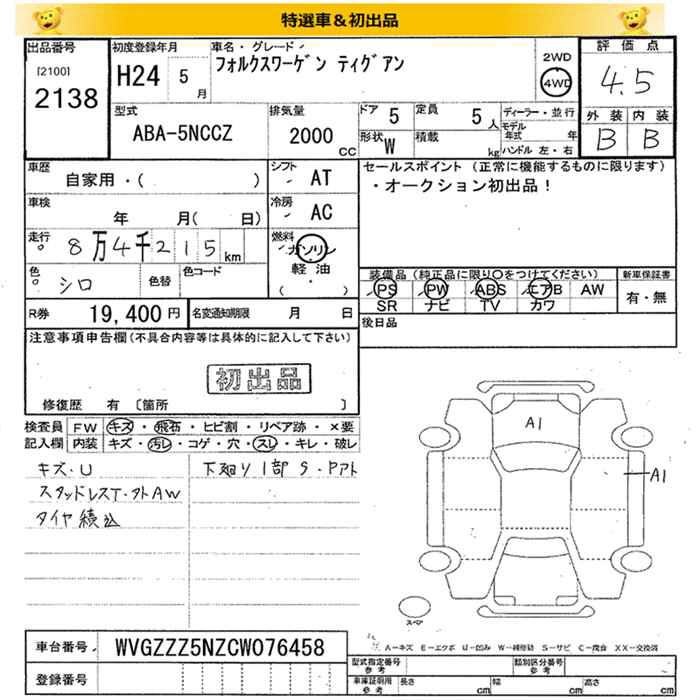 特選車＆初出品
出品番号
[2100]
2138
初度登録年月
H24 5 月
車名・グレード
フォルクスワーゲン ティグアン
2WD
4WD
評価点
4.5
外装 内装
B B
型式
ABA-5NCCZ
排気量
2000 CC
ドア 5
定員 5 人
形状 W
積載 kg
ディーラー・並行
モデル年式 年
ハンドル 左・右
車歴
自家用・( )
シフト AT
車検
年 月( 日)
冷房 AC
走行
8万4千215 km
燃料 ガソリン
軽油
( ・ )
色 シロ
色替
色コード
R券 19,400円
名変通知期限 月 日
セールスポイント (正常に機能するものに限ります)
・オークション初出品！
装備品 (純正品に限り○をつけてください)
PS PW ABS エアB AW
SR ナビ TV カワ
新車保証書
有・無
後日品
注意事項申告欄(不具合内容等は具体的に記入して下さい)
初出品
修復歴 有 〔箇所 〕
検査員記入欄
FW キズ・飛石・ヒビ割・リペア跡・×要
内装 キズ・汚レ・コゲ・穴・スレ・キレ・破レ
キズ・U
スタッドレスT・タトAW
タイヤ積込
下廻り1部S・Pアト
A1
A1
スペア
A－キズ E－エクボ U－凹み W－補修跡 S－サビ C－腐食 XX－交換済
車台番号 WVGZZZ5NZCW076458
登録番号
型式指定番号 参考
類別区分番号 参考
車庫証明用 参考
長さ cm 幅 cm 高さ cm